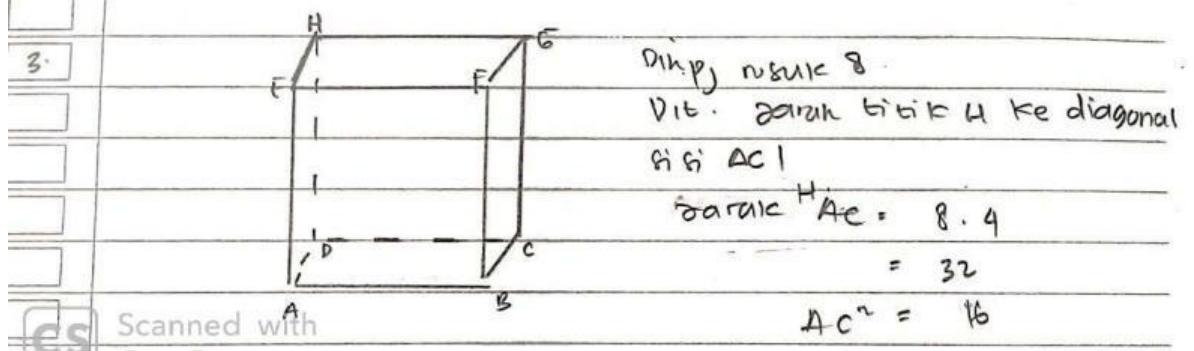 3.
H
G
E
F
D
C
A
B
Dik. pj rusuk 8
Dit. Jarak titik H ke diagonal
sisi AC!
Jarak H AC = 8.4
= 32
AC² = 16
CS Scanned with